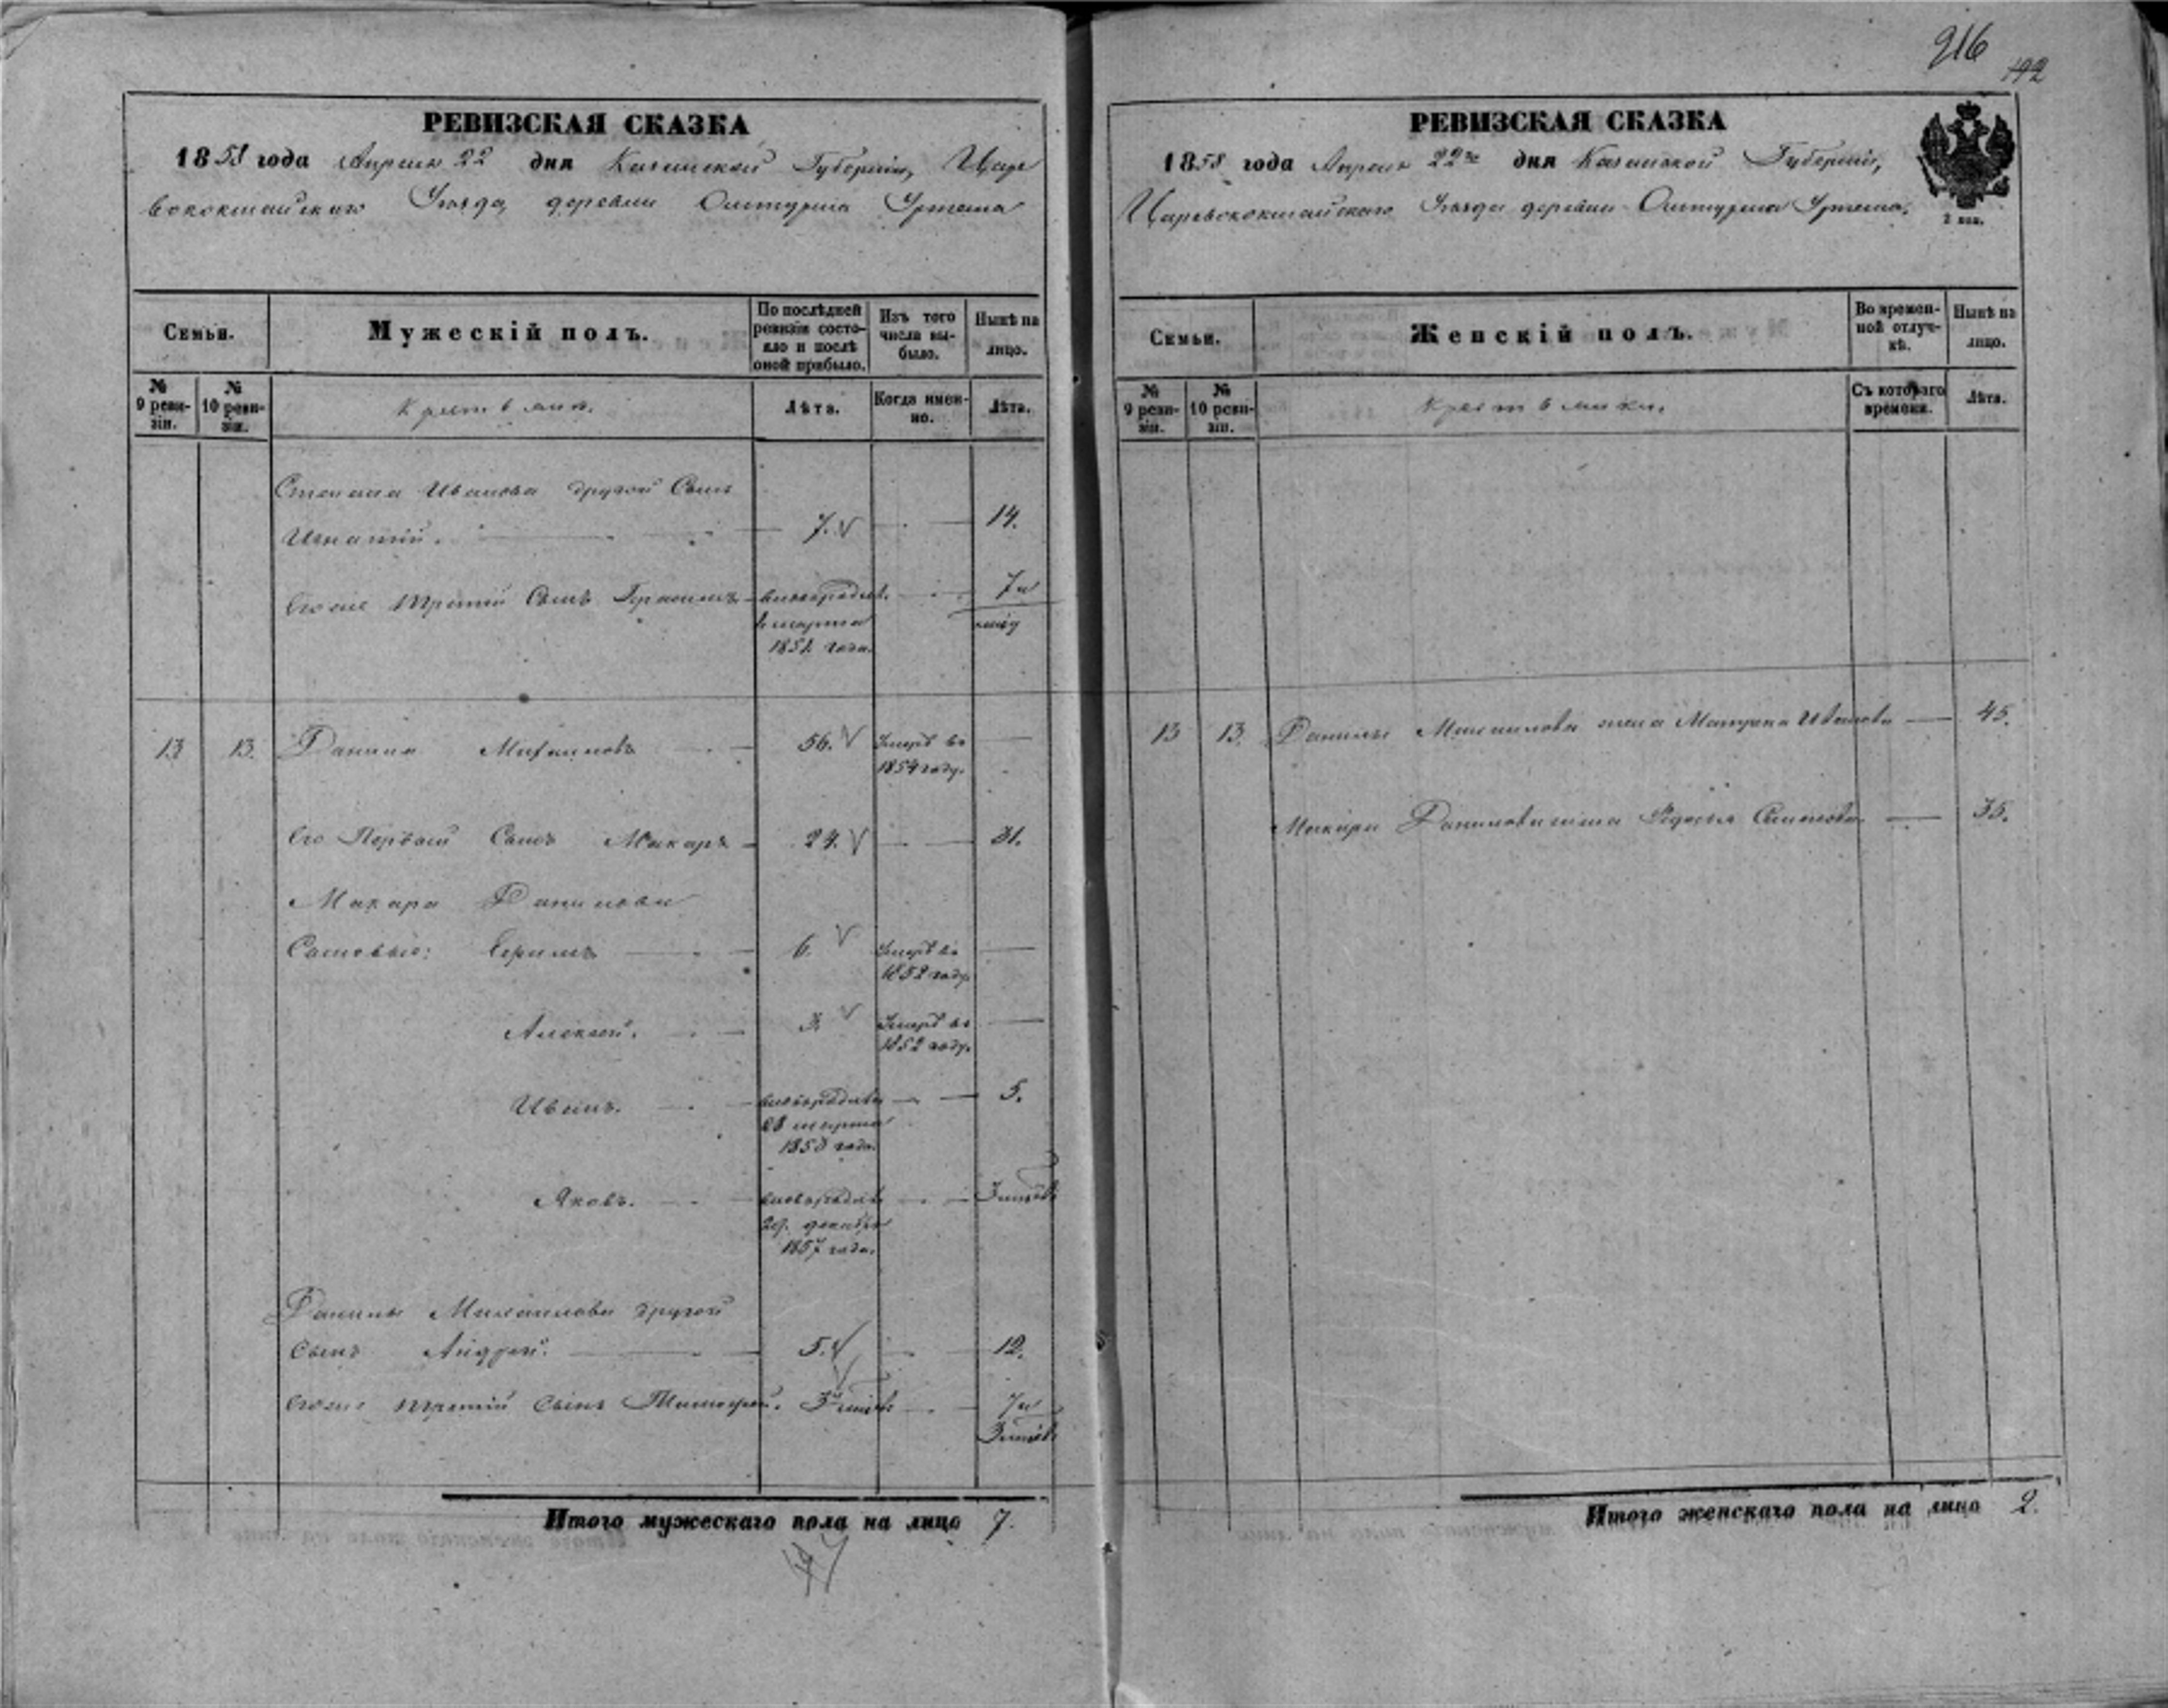 216
192
РЕВИЗСКАЯ СКАЗКА
1858 года Апреля 22 дня Казанской Губернии, Царе
вококшайскаго Уезда, деревни Уртема
Семьи.
Мужескій полъ.
По послѣдней ревизіи состояло и послѣ оной прибыло.
Изъ того числа выбыло.
Нынѣ на лицо.
№ 9 ревизіи.
№ 10 ревизіи.
Крестьяне.
Лѣта.
Когда именно.
Лѣта.
Степана Иванова другой Сынъ
Игнатій. 7. 14.
Егоже третій Сынъ Герасимъ новорожденъ 7 и
марта
1851 года.
13 13. Данила Михаиловъ 56. Умеръ въ
1854 году.
Его Первый Сынъ Макаръ 24. 31.
Макара Данилова
Сыновья: Ефимъ 6. Умеръ въ
1852 году.
Алексей. 3. Умеръ въ
1852 году.
Иванъ. новорожденъ 5.
28 марта
1853 года.
Яковъ. новорожденъ
29. декабря
1857 года.
Данилы Михаилова другой
Сынъ Андрей. 5. 12.
Егоже третій Сынъ Тимофей. 3 7 и
Итого мужескаго пола на лицо 7.
РЕВИЗСКАЯ СКАЗКА
1858 года Апреля 22го дня Казанской Губерніи,
Царевококшайскаго Уезда деревни Уртема.
2 коп.
Семьи.
Женскій полъ.
Во временной отлучкѣ.
Нынѣ на лицо.
№ 9 ревизіи.
№ 10 ревизіи.
Крестьянки.
Съ котораго времени.
Лѣта.
13 13. Данилы Михаилова жена Матрена Иванова 45.
Макара Данилова жена Федосья Семенова 35.
Итого женскаго пола на лицо 2.